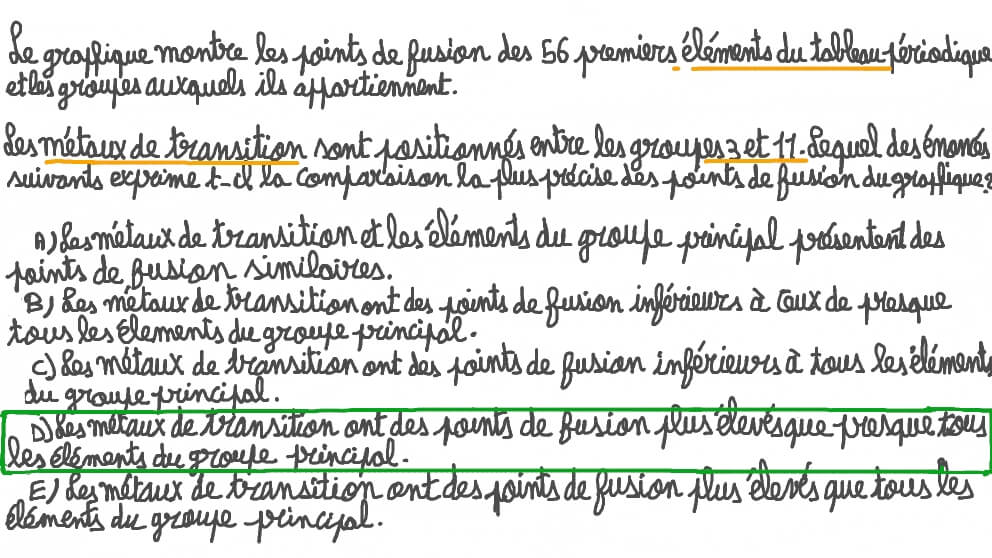 Le graffique montre les points de fusion des 56 premiers éléments du tableau périodique
et les groupes auxquels ils appartiennent.
Les métaux de transition sont positionnés entre les groupes 3 et 11. Lequel des énoncés
suivants exprime t-il la comparaison la plus précise des points de fusion du graffique?
A) Les métaux de transition et les éléments du groupe principal présentent des
points de fusion similaires.
B) Les métaux de transition ont des points de fusion inférieurs à ceux de presque
tous les élements du groupe principal.
C) Les métaux de transition ont des points de fusion inférieurs à tous les éléments
du groupe principal.
D) Les métaux de transition ont des points de fusion plus élevés que presque tous
les éléments du groupe principal.
E) Les métaux de transition ont des points de fusion plus élevés que tous les
éléments du groupe principal.